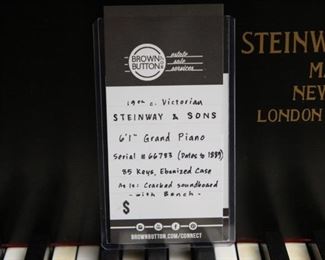 BROWN
BUTTON
estate
sale
services
19th c. Victorian
STEINWAY & SONS
6'1" Grand Piano
Serial # 66783 (Dates to 1889)
85 Keys, Ebonized Case
As Is: Cracked soundboard
- with Bench -
$
BROWNBUTTON.COM/CONNECT
STEINWAY
M
NEW
LONDON